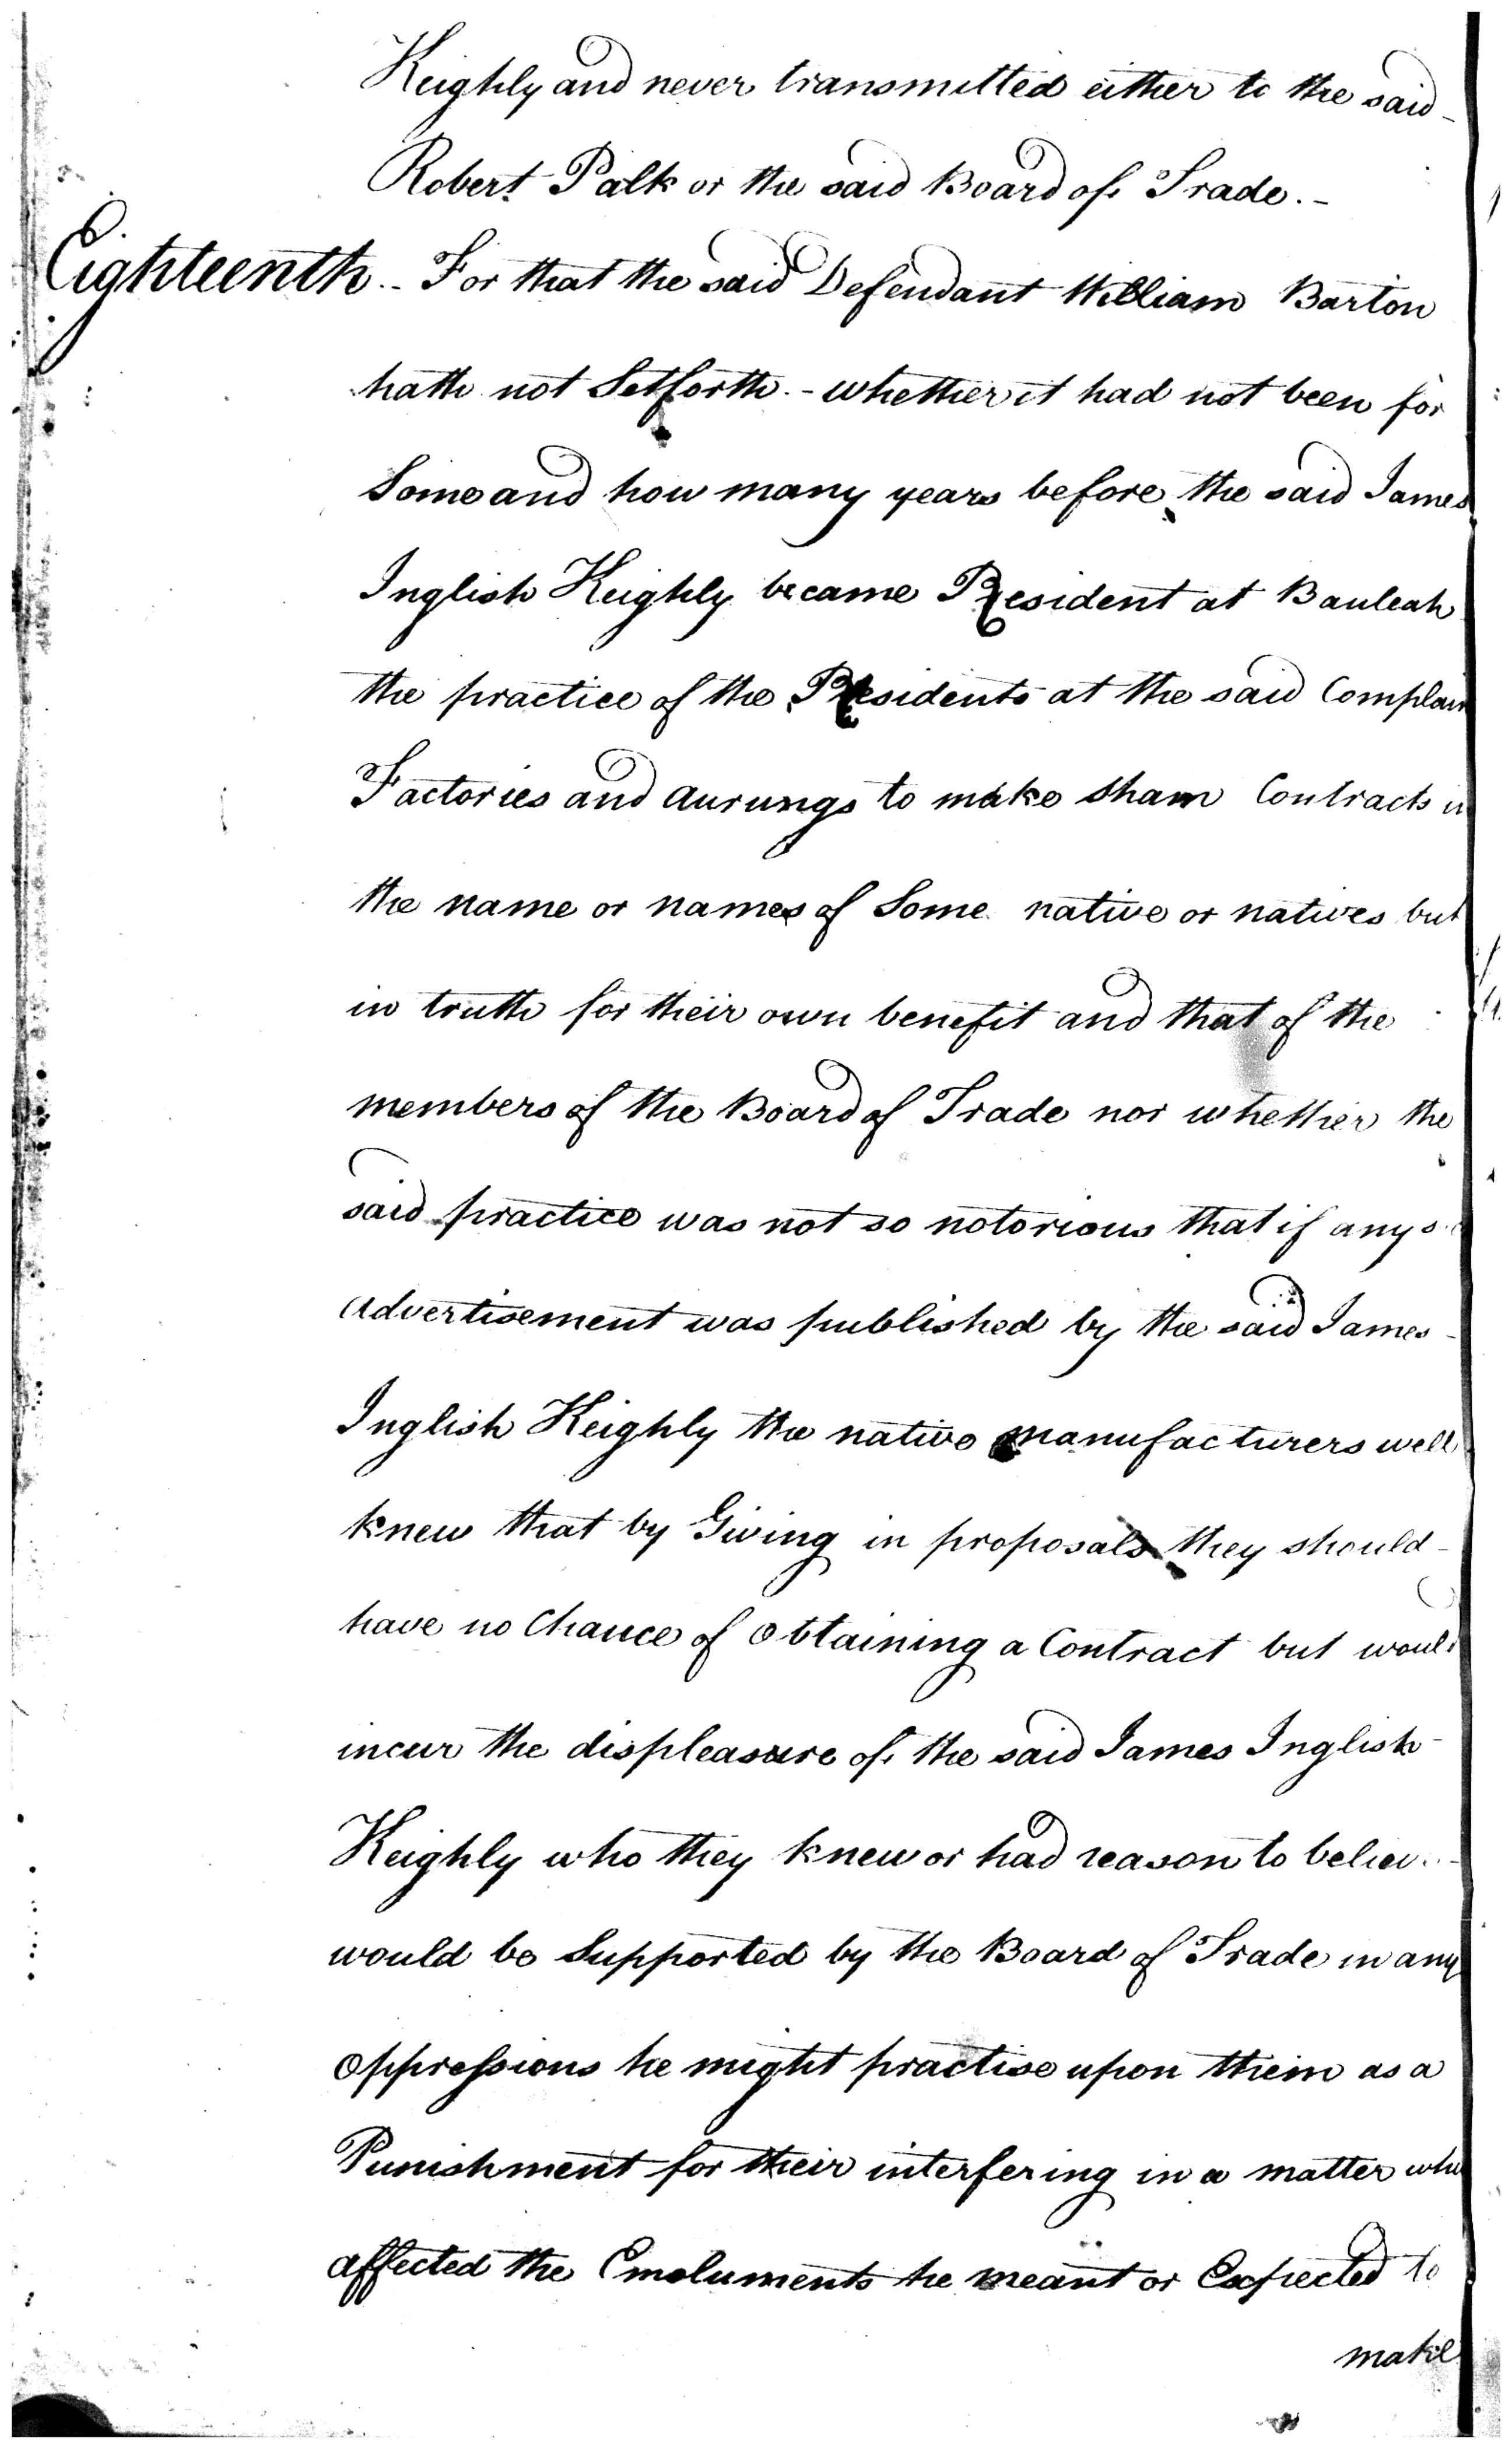 Keighly and never transmitted either to the said -
Robert Palk or the said Board of Trade. -
Eighteenth - For that the said Defendant William Barton
hath not Setforth - whether it had not been for
Some and how many years before the said James
Inglish Keighly became Resident at Bauleah
the practice of the Residents at the said Complain
Factories and aurungs to make sham Contracts in
the name or names of Some native or natives but
in truth for their own benefit and that of the
members of the Board of Trade nor whether the
said practice was not so notorious that if any
Advertisement was published by the said James -
Inglish Keighly the native manufacturers well
knew that by Giving in proposals they should -
have no Chance of Obtaining a Contract but would
incur the displeasure of the said James Inglish -
Keighly who they knew or had reason to believ
would be Supported by the Board of Trade in any
Oppressions he might practise upon them as a
Punishment for their interfering in a matter whi
affected the Emoluments he meant or Expected to
make